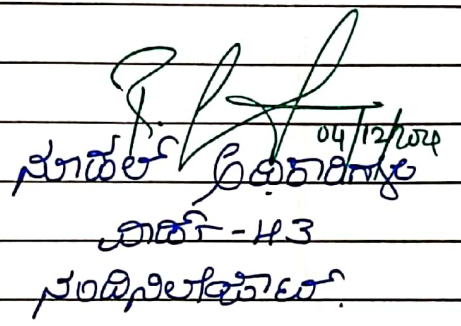 04/12/2024
ನೋಡಲ್ ಅಧಿಕಾರಿಗಳು
ವಾರ್ಡ್ -43
ನಂದಿನಿಲೇಔಟ್.